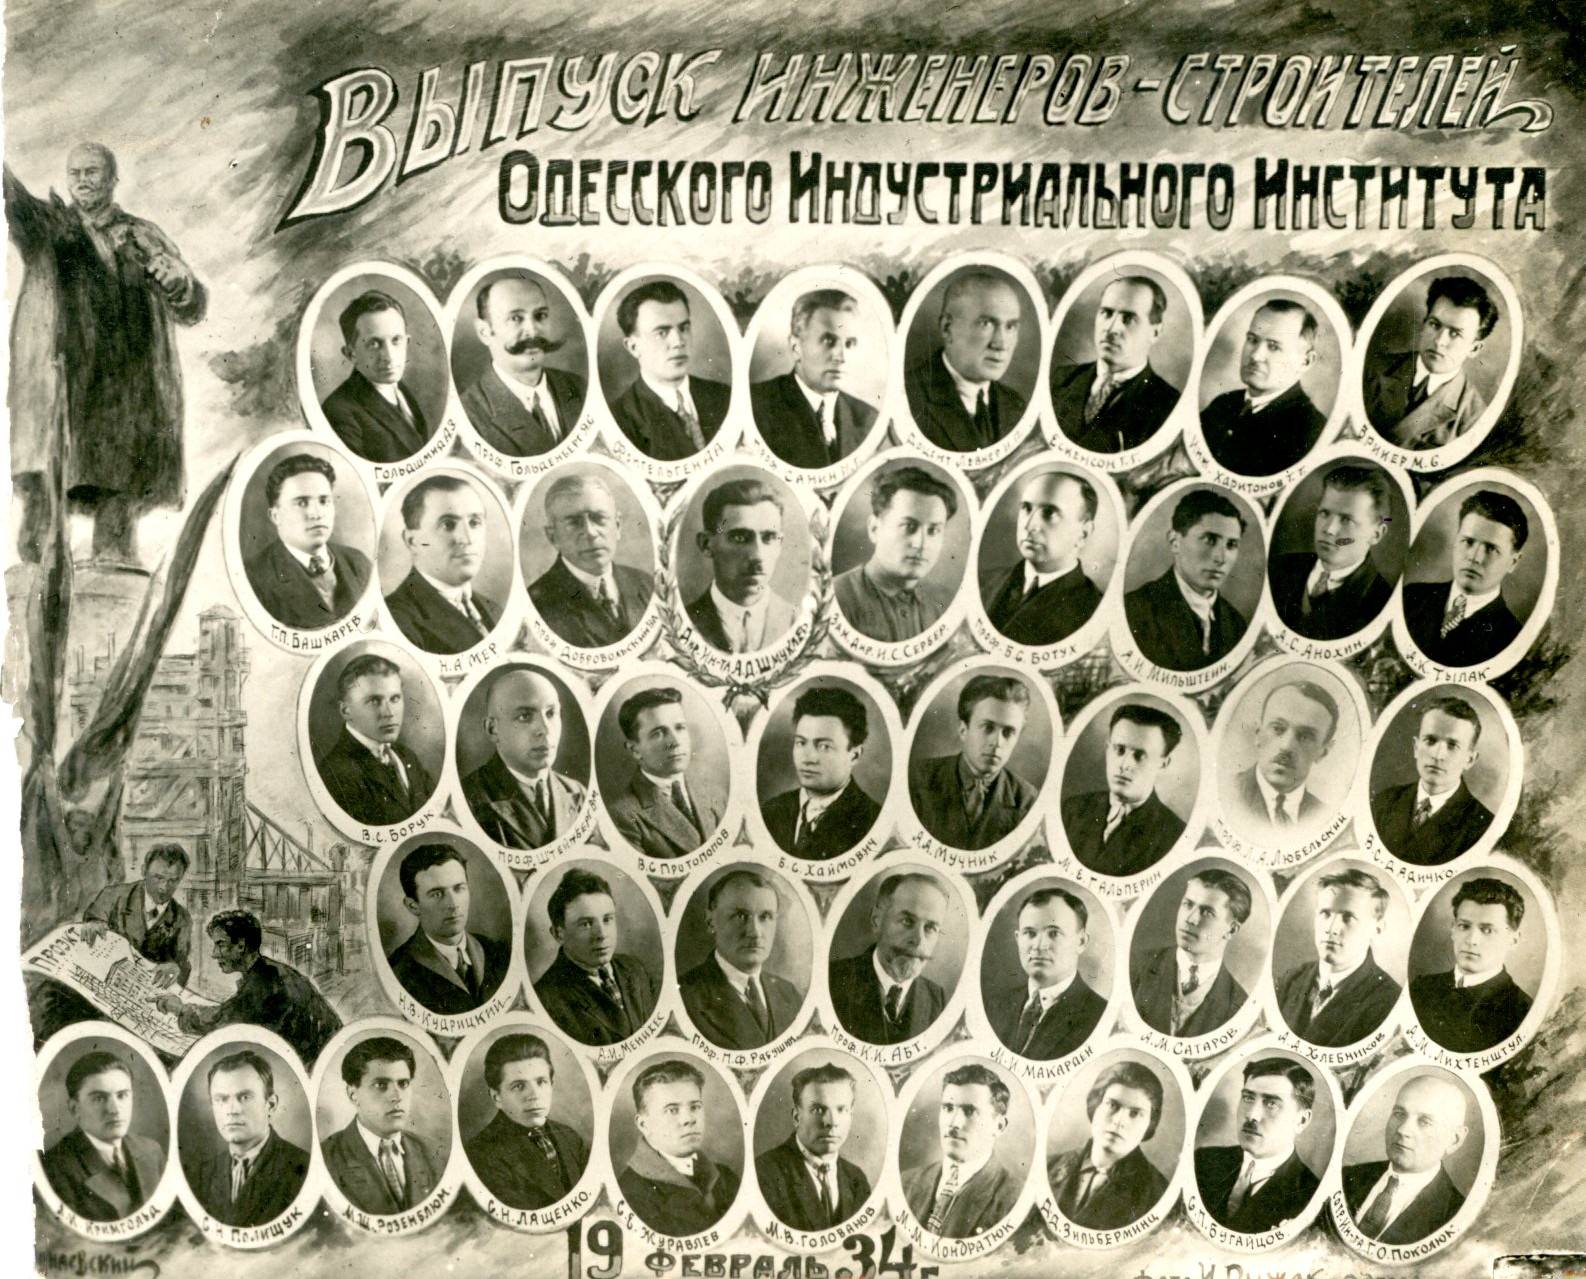 Выпуск инженеров-строителей
Одесского Индустриального Института
Гольдшмид А.З.
Проф. Гольденберг
Фогельген Д.А.
Проф. Санин
Доцент Левнер
Ескенсон Г.Г.
Харитонов
Врикер М.С.
Т.П. Башкарев
Н.А. Мер
Проф. Добровольский
Дир. Ин-та А.Д. Шмук
Зам. Дир. И.С. Сербер.
Проф. Б.С. Ботух
А.И. Мильштейн.
А.С. Анохин.
А.К. Тылак
В.С. Борук
Проф. Штейнберг
В.С. Протопопов
Б.С. Хаймович
А.А. Мучник
М.Е. Гальперин
Проф. Л.А. Любельский
В.С. Дадичко.
ПРОЭКТ
Н.В. Кудрицкий
А.И. Менихес
Проф. П.Ф. Рябушкин
Проф. К.И. Абт.
М.И. Макарден
А.М. Сатаров
А.Д. Хлебников
А.М. Лихтенштул.
Кримгольд
С.Н. Полищук
М.Ш. Розенблюм.
С.Н. Лященко.
С.Е. Журавлев
М.В. Голованов
М.М. Кондратюк
Д.Д. Зильберминц
С.П. Бугайцов.
Сотр. Ин-та Г.О. Поколюк.
19 февраль 34 г.